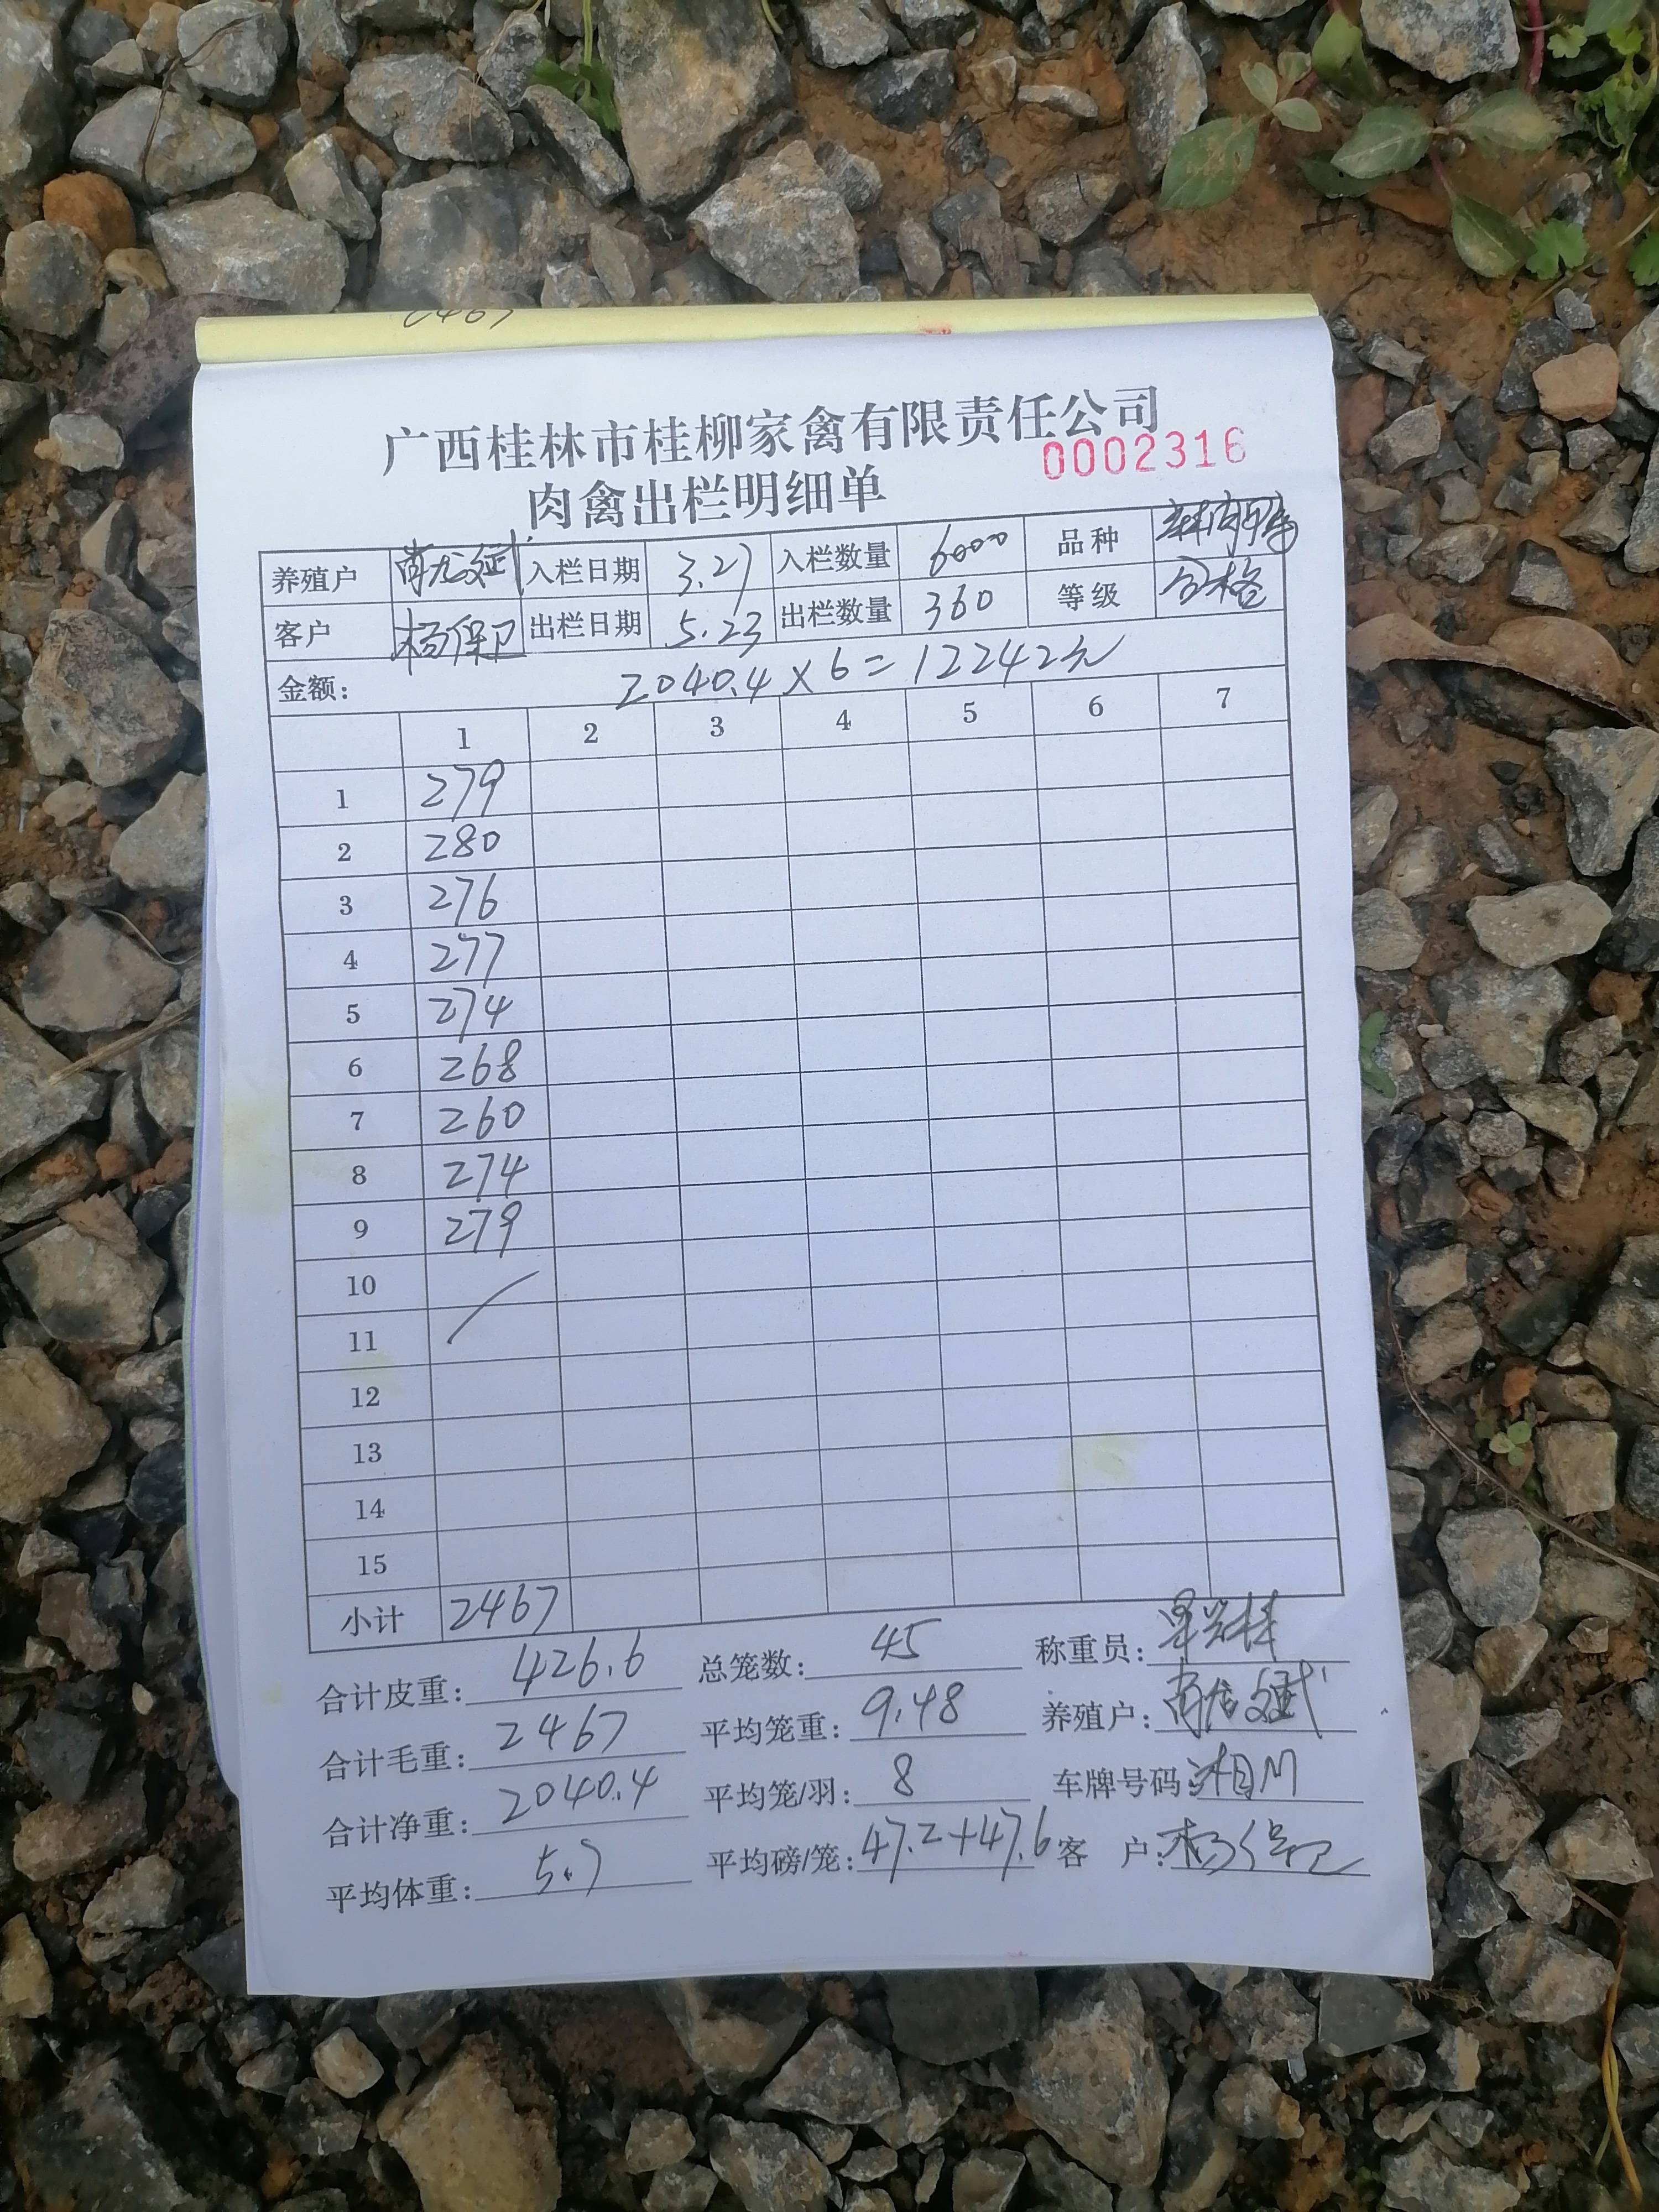 2467
广西桂林市桂柳家禽有限责任公司
0002316
肉禽出栏明细单
养殖户 入栏日期 3.27 入栏数量 6000 品种
客户 杨保卫 出栏日期 5.23 出栏数量 360 等级 合格
金额: 2040.4×6=12242元
1 2 3 4 5 6 7
1 279
2 280
3 276
4 277
5 274
6 268
7 260
8 274
9 279
10
11
12
13
14
15
小计 2467
合计皮重: 426.6 总笼数: 45 称重员:
合计毛重: 2467 平均笼重: 9.48 养殖户:
合计净重: 2040.4 平均笼/羽: 8 车牌号码:
平均体重: 5.7 平均磅/笼: 47.2+47.6 客 户: 杨保卫